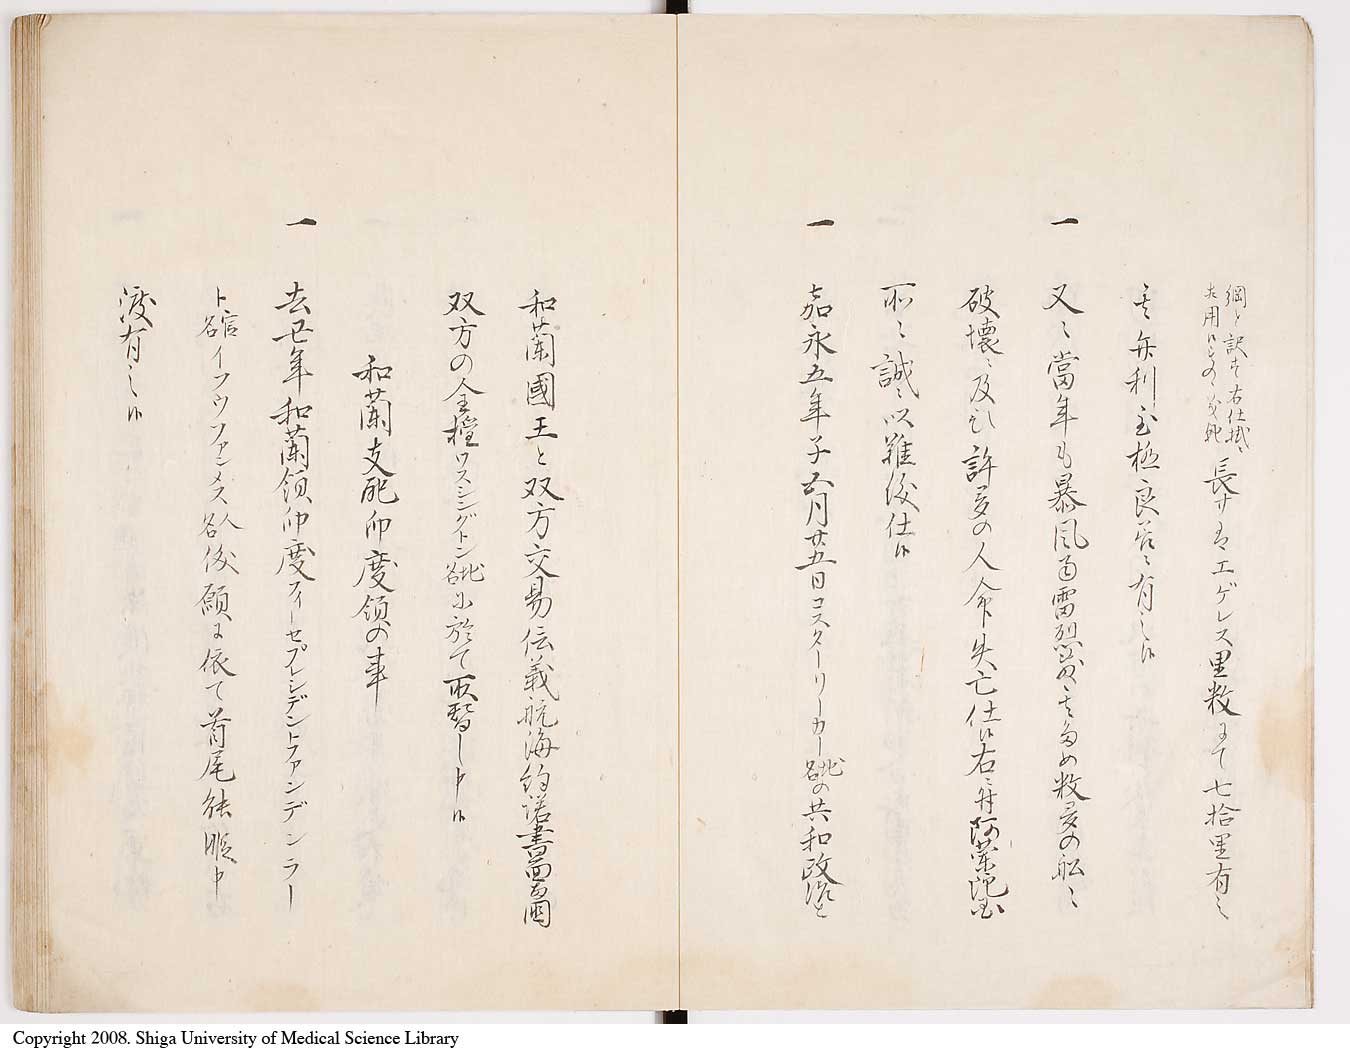 綱と訳す右仕掛ニ
相用候もの義ニ御座候
長サはエゲレス里数ニて七拾里有之
其弁利至極良启ニ有之候
一 又々當年も暴風雨雷烈敷其ため数多の船々
破壊ニ及ひ許多の人命失亡仕候右ニ付阿蘭陀国
所々誠ニ以難渋仕候
一 嘉永五年子五月廿五日コスターリーカー地名の共和政治と
和蘭國王と双方交易伝義航海約諾書面両國
双方の全権ワスシングトン地名ニ於て取替し申候
和蘭支配印度領の事
一 去丑年和蘭領印度フィーセプレシデントファンデンラー
ト官名イフウファンメス人名役願ニ依て首尾能暇申
渡有之候
Copyright 2008. Shiga University of Medical Science Library